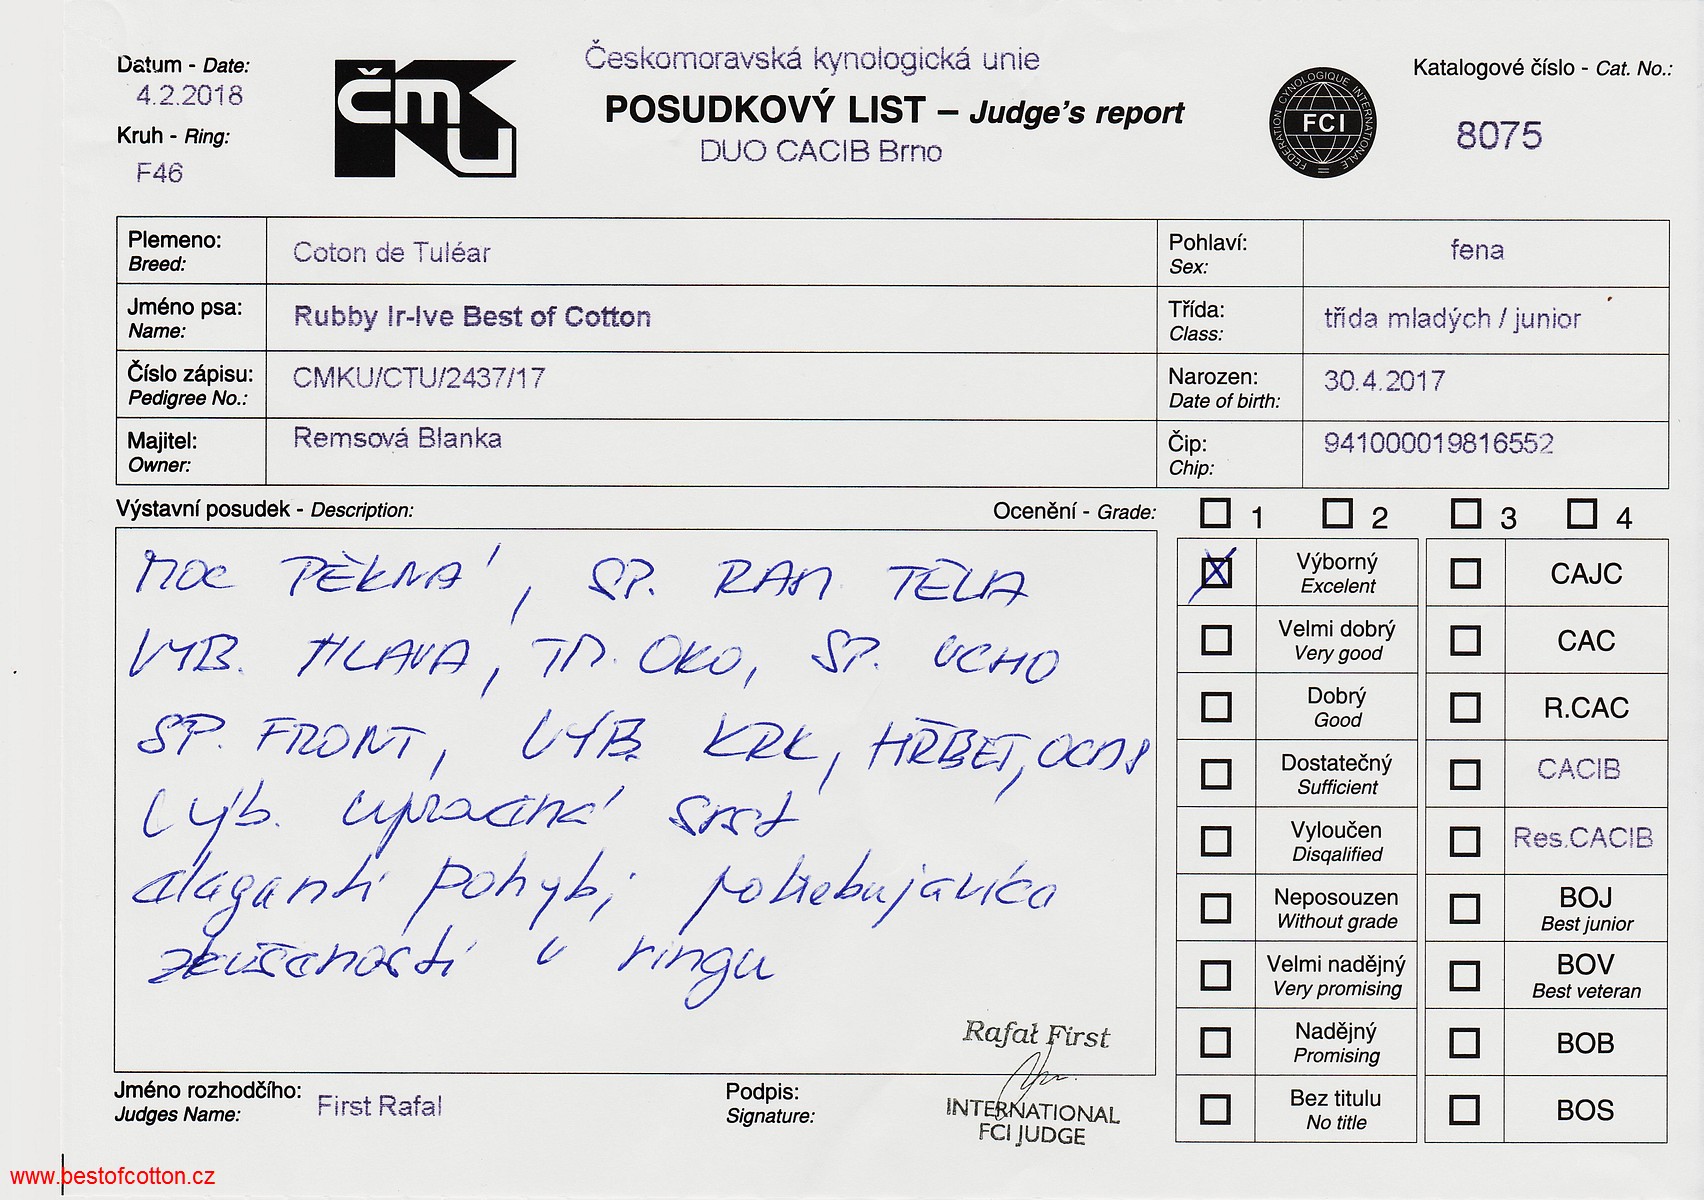 Datum - Date:
4.2.2018
Kruh - Ring:
F46
čmku
Českomoravská kynologická unie
POSUDKOVÝ LIST – Judge's report
DUO CACIB Brno
FEDERATION CYNOLOGIQUE INTERNATIONALE
FCI
Katalogové číslo - Cat. No.:
8075
Plemeno:
Breed:
Coton de Tuléar
Pohlaví:
Sex:
fena
Jméno psa:
Name:
Rubby Ir-Ive Best of Cotton
Třída:
Class:
třída mladých / junior
Číslo zápisu:
Pedigree No.:
CMKU/CTU/2437/17
Narozen:
Date of birth:
30.4.2017
Majitel:
Owner:
Remsová Blanka
Čip:
Chip:
941000019816552
Výstavní posudek - Description:
Ocenění - Grade:
1 2 3 4
MOC PĚKNÁ, SP. RAM TĚLA
VYB. HLAVA, TM. OKO, SP. UCHO
SP. FRONT, VYB. KRK, HŘBET, OCAS
Výb. upravená srst
elaganti pohyb,
zkušenosti v ringu
Výborný
Excelent
CAJC
Velmi dobrý
Very good
CAC
Dobrý
Good
R.CAC
Dostatečný
Sufficient
CACIB
Vyloučen
Disqalified
Res.CACIB
Neposouzen
Without grade
BOJ
Best junior
Velmi nadějný
Very promising
BOV
Best veteran
Nadějný
Promising
BOB
Bez titulu
No title
BOS
Rafał First
INTERNATIONAL
FCI JUDGE
Jméno rozhodčího:
Judges Name:
First Rafal
Podpis:
Signature:
www.bestofcotton.cz